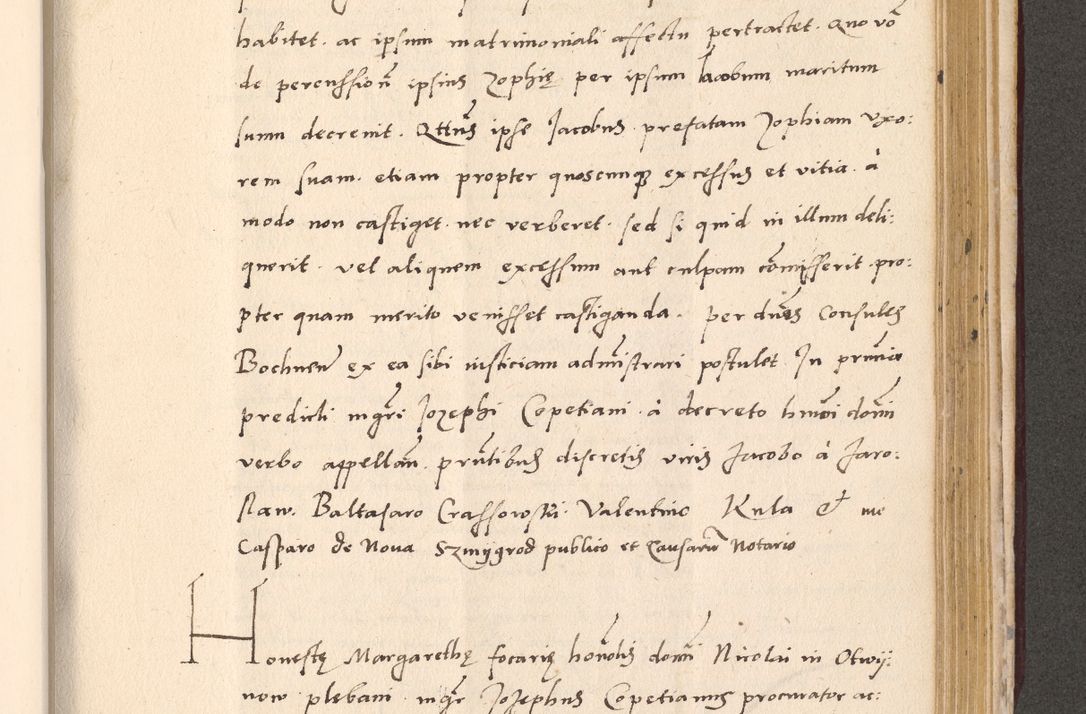 habitet. ac ip̃sum matrimoniali affectu pertractet. Quo vō
de percussion̄ ipsius Zophię per ipsum Jacobum maritum
suum decrevit. Qttus ipse Jacobus prefatam Zophiam uxo:
rem suam. etiam propter quoscunq excessus et vitia. à
modo non castiget. nec verberet. sed si quid in illum deli:
querit. vel aliquem excessum aut culpam cōmisserit. pro:
pter quam merito venisset castiganda. per dños Consules
Bochnen̄ ex ea sibi iusticiam admĩstrari postulet. In pñtia
predicti mgr̃i Jozephi Copetiani. à decreto hmõi domĩ
verbo appellan̄. pñtibus discretis viris Jacobo à Jaro:
slaw. Baltasaro Crassowski. Valentino Kula & me
Casparo de Nova Szmygrod publico et Causarū Notario
Honestę Margarethę focarię honolis̃ domĩ Nicolai in Otwij:
now plebani mgr̃ Jozephus Copetianus procurator ac: